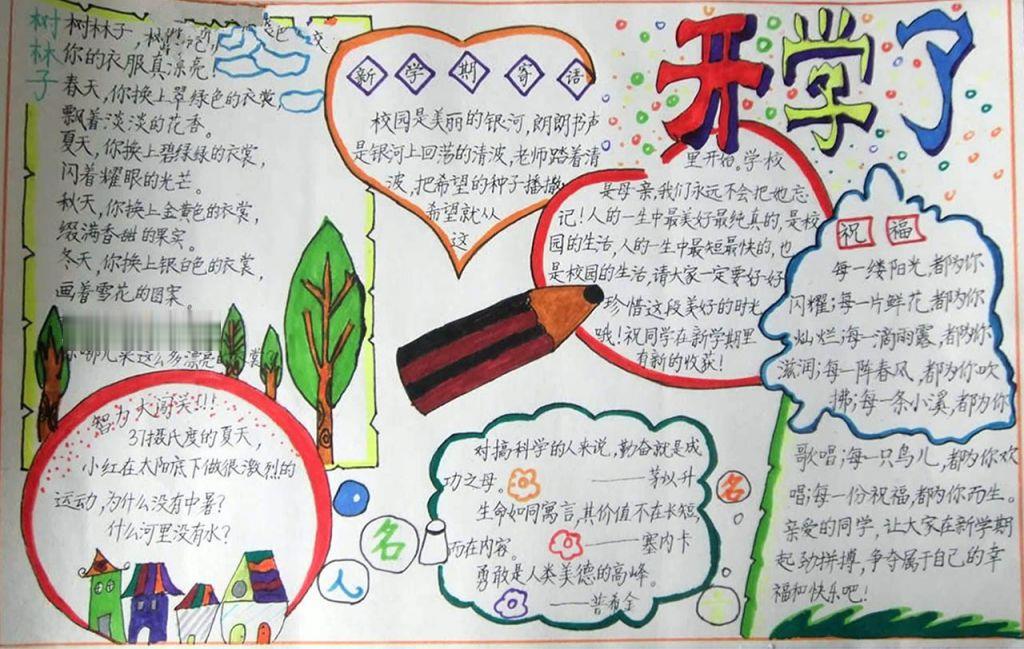 开学了
树林子
树林子，
你的衣服真漂亮！
春天，你换上翠绿色的衣裳，
飘着淡淡的花香。
夏天，你换上碧绿绿的衣裳，
闪着耀眼的光芒。
秋天，你换上金黄色的衣裳，
缀满香甜的果实。
冬天，你换上银白色的衣裳，
画着雪花的图案。
你哪儿来这么多漂亮的衣裳？
新学期寄语
校园是美丽的银河，朗朗书声
是银河上回荡的清波，老师踏着清
波，把希望的种子播撒
希望就从
这
里开始。学校
是母亲，我们永远不会把他忘
记！人的一生中最美好最纯真的，是校
园的生活，人的一生中最短最快的，也
是校园的生活，请大家一定要好好
珍惜这段美好的时光
哦！祝同学在新学期里
有新的收获！
祝福
每一缕阳光，都为你
闪耀；每一片鲜花，都为你
灿烂；每一滴雨露，都为你
滋润；每一阵春风，都为你吹
拂；每一条小溪，都为你
歌唱；每一只鸟儿，都为你欢
唱；每一份祝福，都为你而生。
亲爱的同学，让大家在新学期
起劲拼搏，争夺属于自己的幸
福和快乐吧！
智力大闯关！！！
37摄氏度的夏天，
小红在太阳底下做很激烈的
运动，为什么没有中暑？
什么河里没有水？
名人名言
对搞科学的人来说，勤奋就是成
功之母。——茅以升
生命如同寓言，其价值不在长短，
而在内容。——塞内卡
勇敢是人类美德的高峰。
——普希金